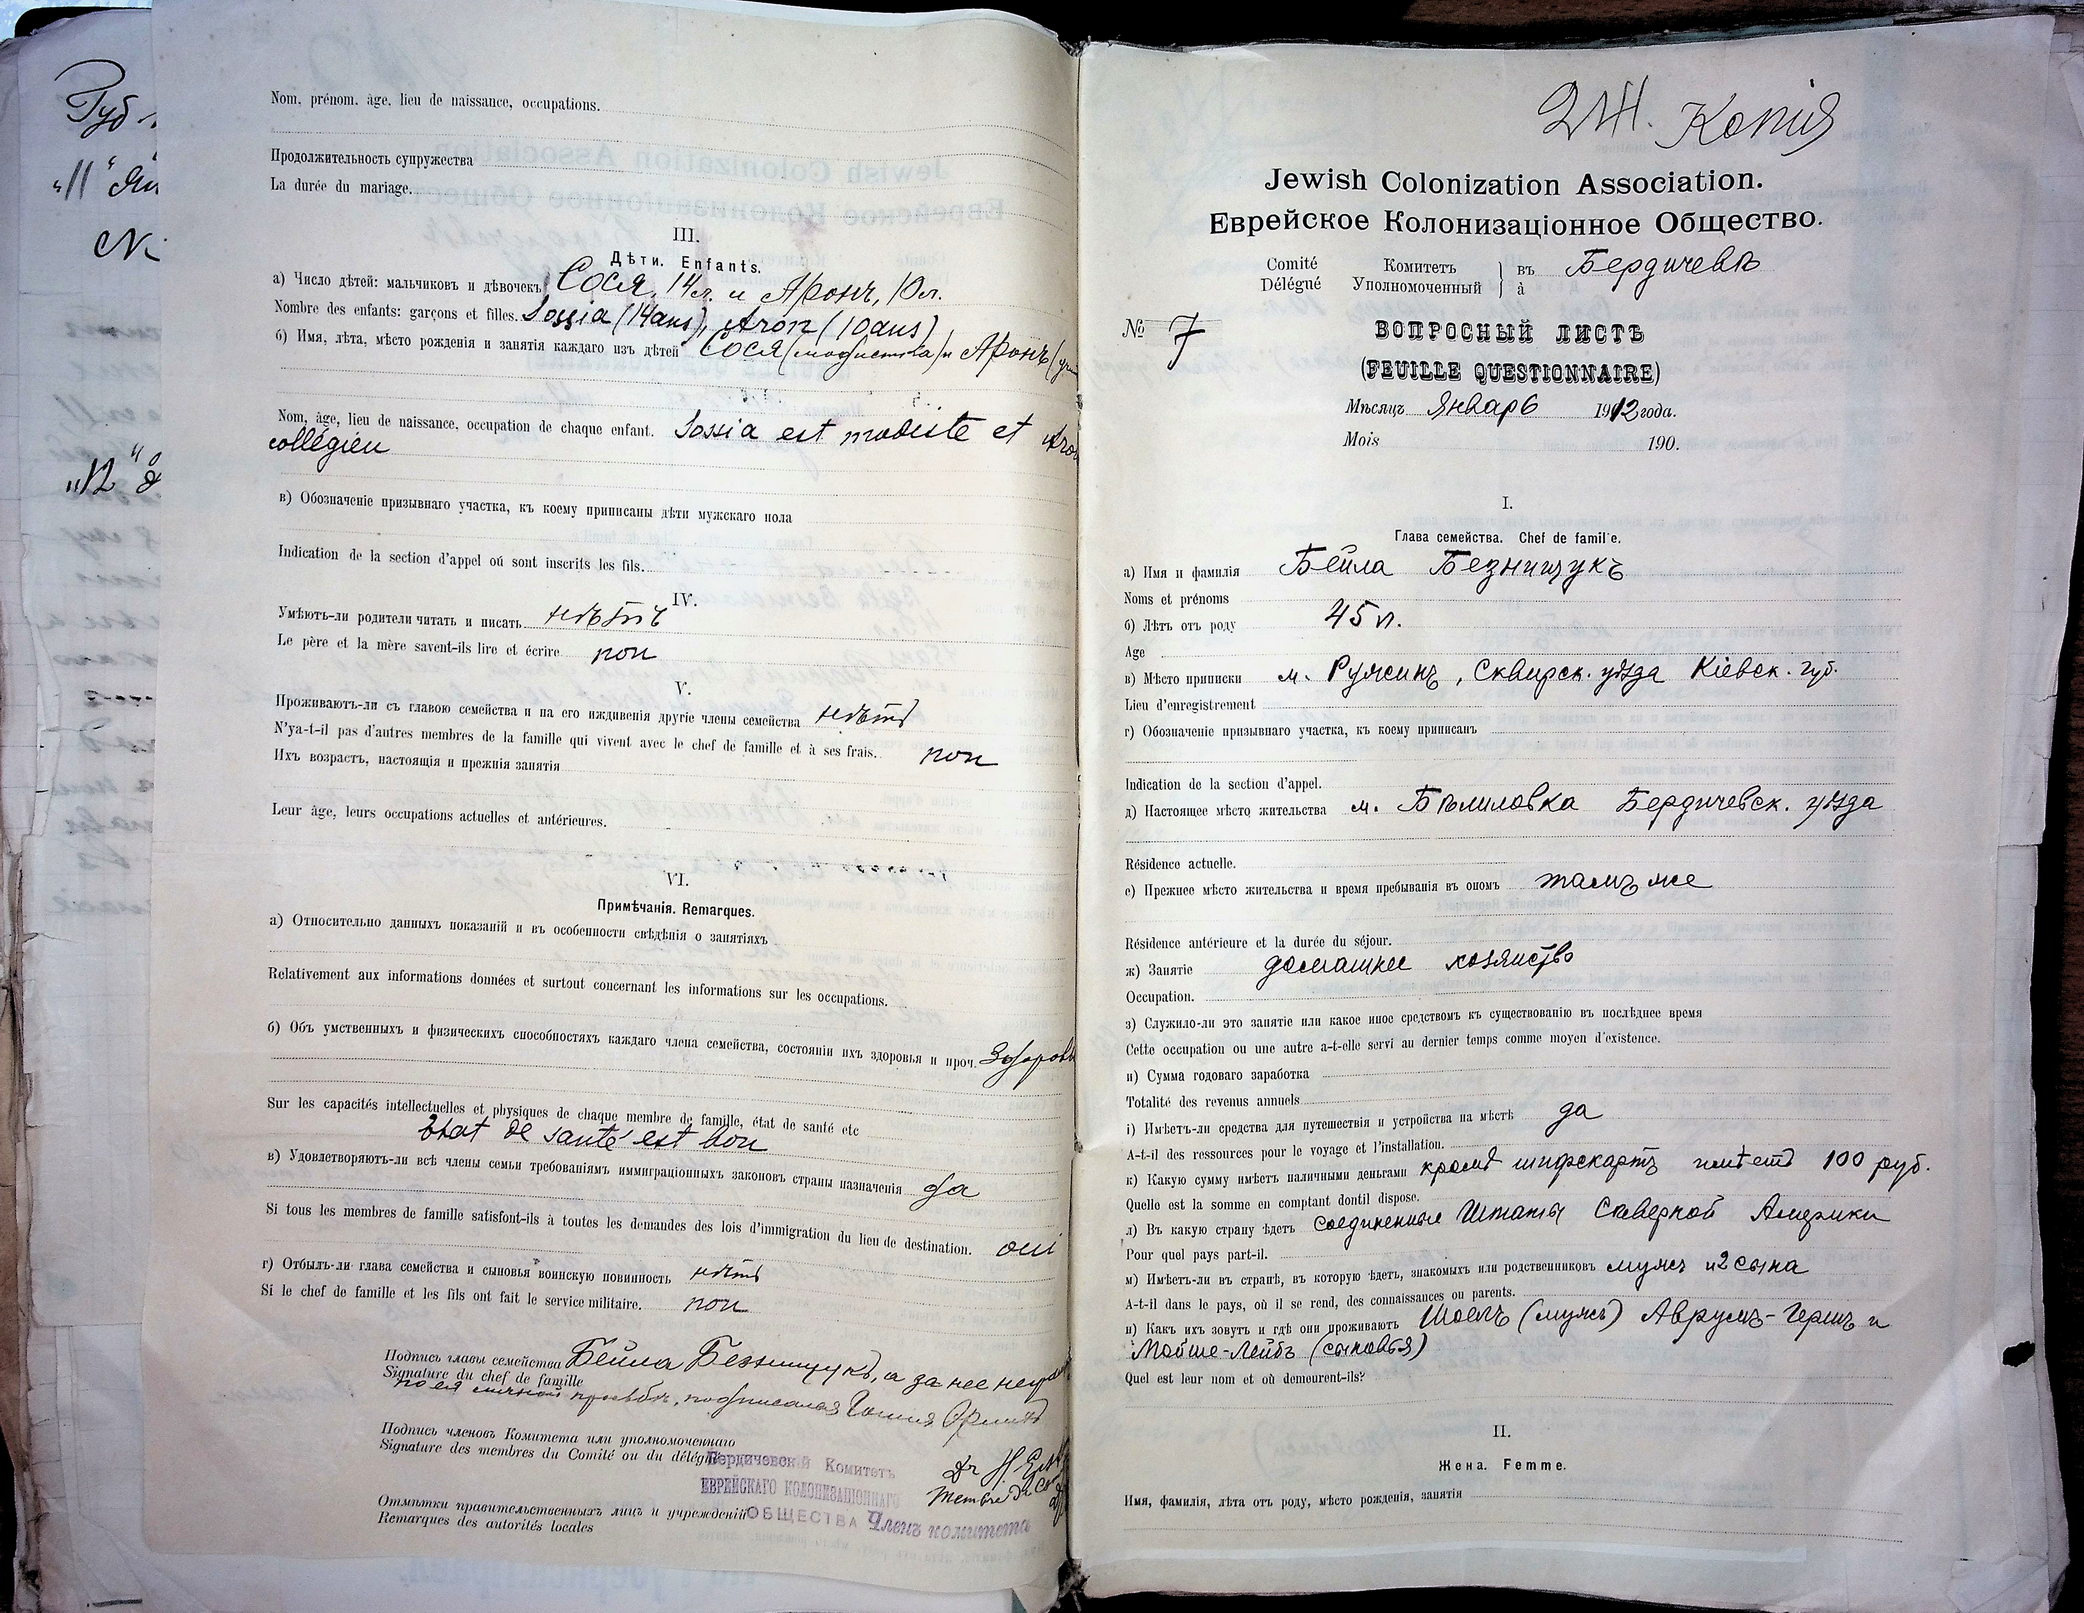 Губ
"11"
№
"12"
Nom, prénom, âge, lieu de naissance, occupations.
Продолжительность супружества
La durée du mariage.
III.
Дѣти. Enfants.
а) Число дѣтей: мальчиковъ и дѣвочекъ Сося, 14 л. и Аронъ, 10 л.
Nombre des enfants: garçons et filles. Sossia (14 ans), Aron (10 ans)
б) Имя, лѣта, мѣсто рожденія и занятія каждаго изъ дѣтей Сося (модистка) и Аронъ
Nom, âge, lieu de naissance, occupation de chaque enfant. Sossia est modiste et Aron
collégien
в) Обозначеніе призывнаго участка, къ коему приписаны дѣти мужскаго пола
Indication de la section d'appel oú sont inscrits les fils.
IV.
Умѣютъ-ли родители читать и писать нѣтъ
Le père et la mère savent-ils lire et écrire non
V.
Проживаютъ-ли съ главою семейства и на его иждивенія другіе члены семейства нѣтъ
N'ya-t-il pas d'autres membres de la famille qui vivent avec le chef de famille et à ses frais. non
Ихъ возрастъ, настоящія и прежнія занятія
Leur âge, leurs occupations actuelles et antérieures.
VI.
Примѣчанія. Remarques.
а) Относительно данныхъ показаній и въ особенности свѣдѣнія о занятіяхъ
Relativement aux informations données et surtout concernant les informations sur les occupations.
б) Объ умственныхъ и физическихъ способностяхъ каждаго члена семейства, состояніи ихъ здоровья и проч. Здоровы
Sur les capacités intellectuelles et physiques de chaque membre de famille, état de santé etc
Etat de santé est bon
в) Удовлетворяютъ-ли всѣ члены семьи требованіямъ иммиграціонныхъ законовъ страны назначенія да
Si tous les membres de famille satisfont-ils à toutes les demandes des lois d'immigration du lieu de destination. oui
г) Отбылъ-ли глава семейства и сыновья воинскую повинность нѣтъ
Si le chef de famille et les fils ont fait le service militaire. non
Подпись главы семейства Бейла Безнищукъ, а за нее
Signature du chef de famille
по ея личной просьбѣ, подписалъ
Подпись членовъ Комитета или уполномоченнаго
Signature des membres du Comité ou du délégué
Бердичевскій Комитетъ
ЕВРЕЙСКАГО КОЛОНИЗАЦІОННАГО
ОБЩЕСТВА
Dr H.
Membre du
Членъ комитета
Отмѣтки правительственныхъ лицъ и учрежденій
Remarques des autorités locales
Копія
Jewish Colonization Association.
Еврейское Колонизаціонное Общество.
Comité Комитетъ въ Бердичевѣ
Délégué Уполномоченный à
№ 7
ВОПРОСНЫЙ ЛИСТЪ
(FEUILLE QUESTIONNAIRE)
Мѣсяцъ Январь 1912 года.
Mois 190.
I.
Глава семейства. Chef de famille.
а) Имя и фамилія Бейла Безнищукъ
Noms et prénoms
б) Лѣтъ отъ роду 45 л.
Age
в) Мѣсто приписки м. Ружинъ, Сквирск. уѣзда Кіевск. губ.
Lieu d'enregistrement
г) Обозначеніе призывнаго участка, къ коему приписанъ
Indication de la section d'appel.
д) Настоящее мѣсто жительства м. Бѣлиловка Бердичевск. уѣзда
Résidence actuelle.
е) Прежнее мѣсто жительства и время пребыванія въ ономъ тамъ же
Résidence antérieure et la durée du séjour.
ж) Занятіе домашнее хозяйство
Occupation.
з) Служило-ли это занятіе или какое иное средствомъ къ существованію въ послѣднее время
Cette occupation ou une autre a-t-elle servi au dernier temps comme moyen d'existence.
и) Сумма годоваго заработка
Totalité des revenus annuels
і) Имѣетъ-ли средства для путешествія и устройства на мѣстѣ да
A-t-il des ressources pour le voyage et l'installation.
к) Какую сумму имѣетъ наличными деньгами кромѣ шифскартъ имѣетъ 100 руб.
Quelle est la somme en comptant dontil dispose.
л) Въ какую страну ѣдетъ Соединенные Штаты Сѣверной Америки
Pour quel pays part-il.
м) Имѣетъ-ли въ странѣ, въ которую ѣдетъ, знакомыхъ или родственниковъ мужъ и 2 сына
A-t-il dans le pays, où il se rend, des connaissances ou parents.
н) Какъ ихъ зовутъ и гдѣ они проживаютъ Шоелъ (мужъ) Аврумъ-Гершъ и
Мойше-Лейбъ (сыновья)
Quel est leur nom et où demeurent-ils?
II.
Жена. Femme.
Имя, фамилія, лѣта отъ роду, мѣсто рожденія, занятія